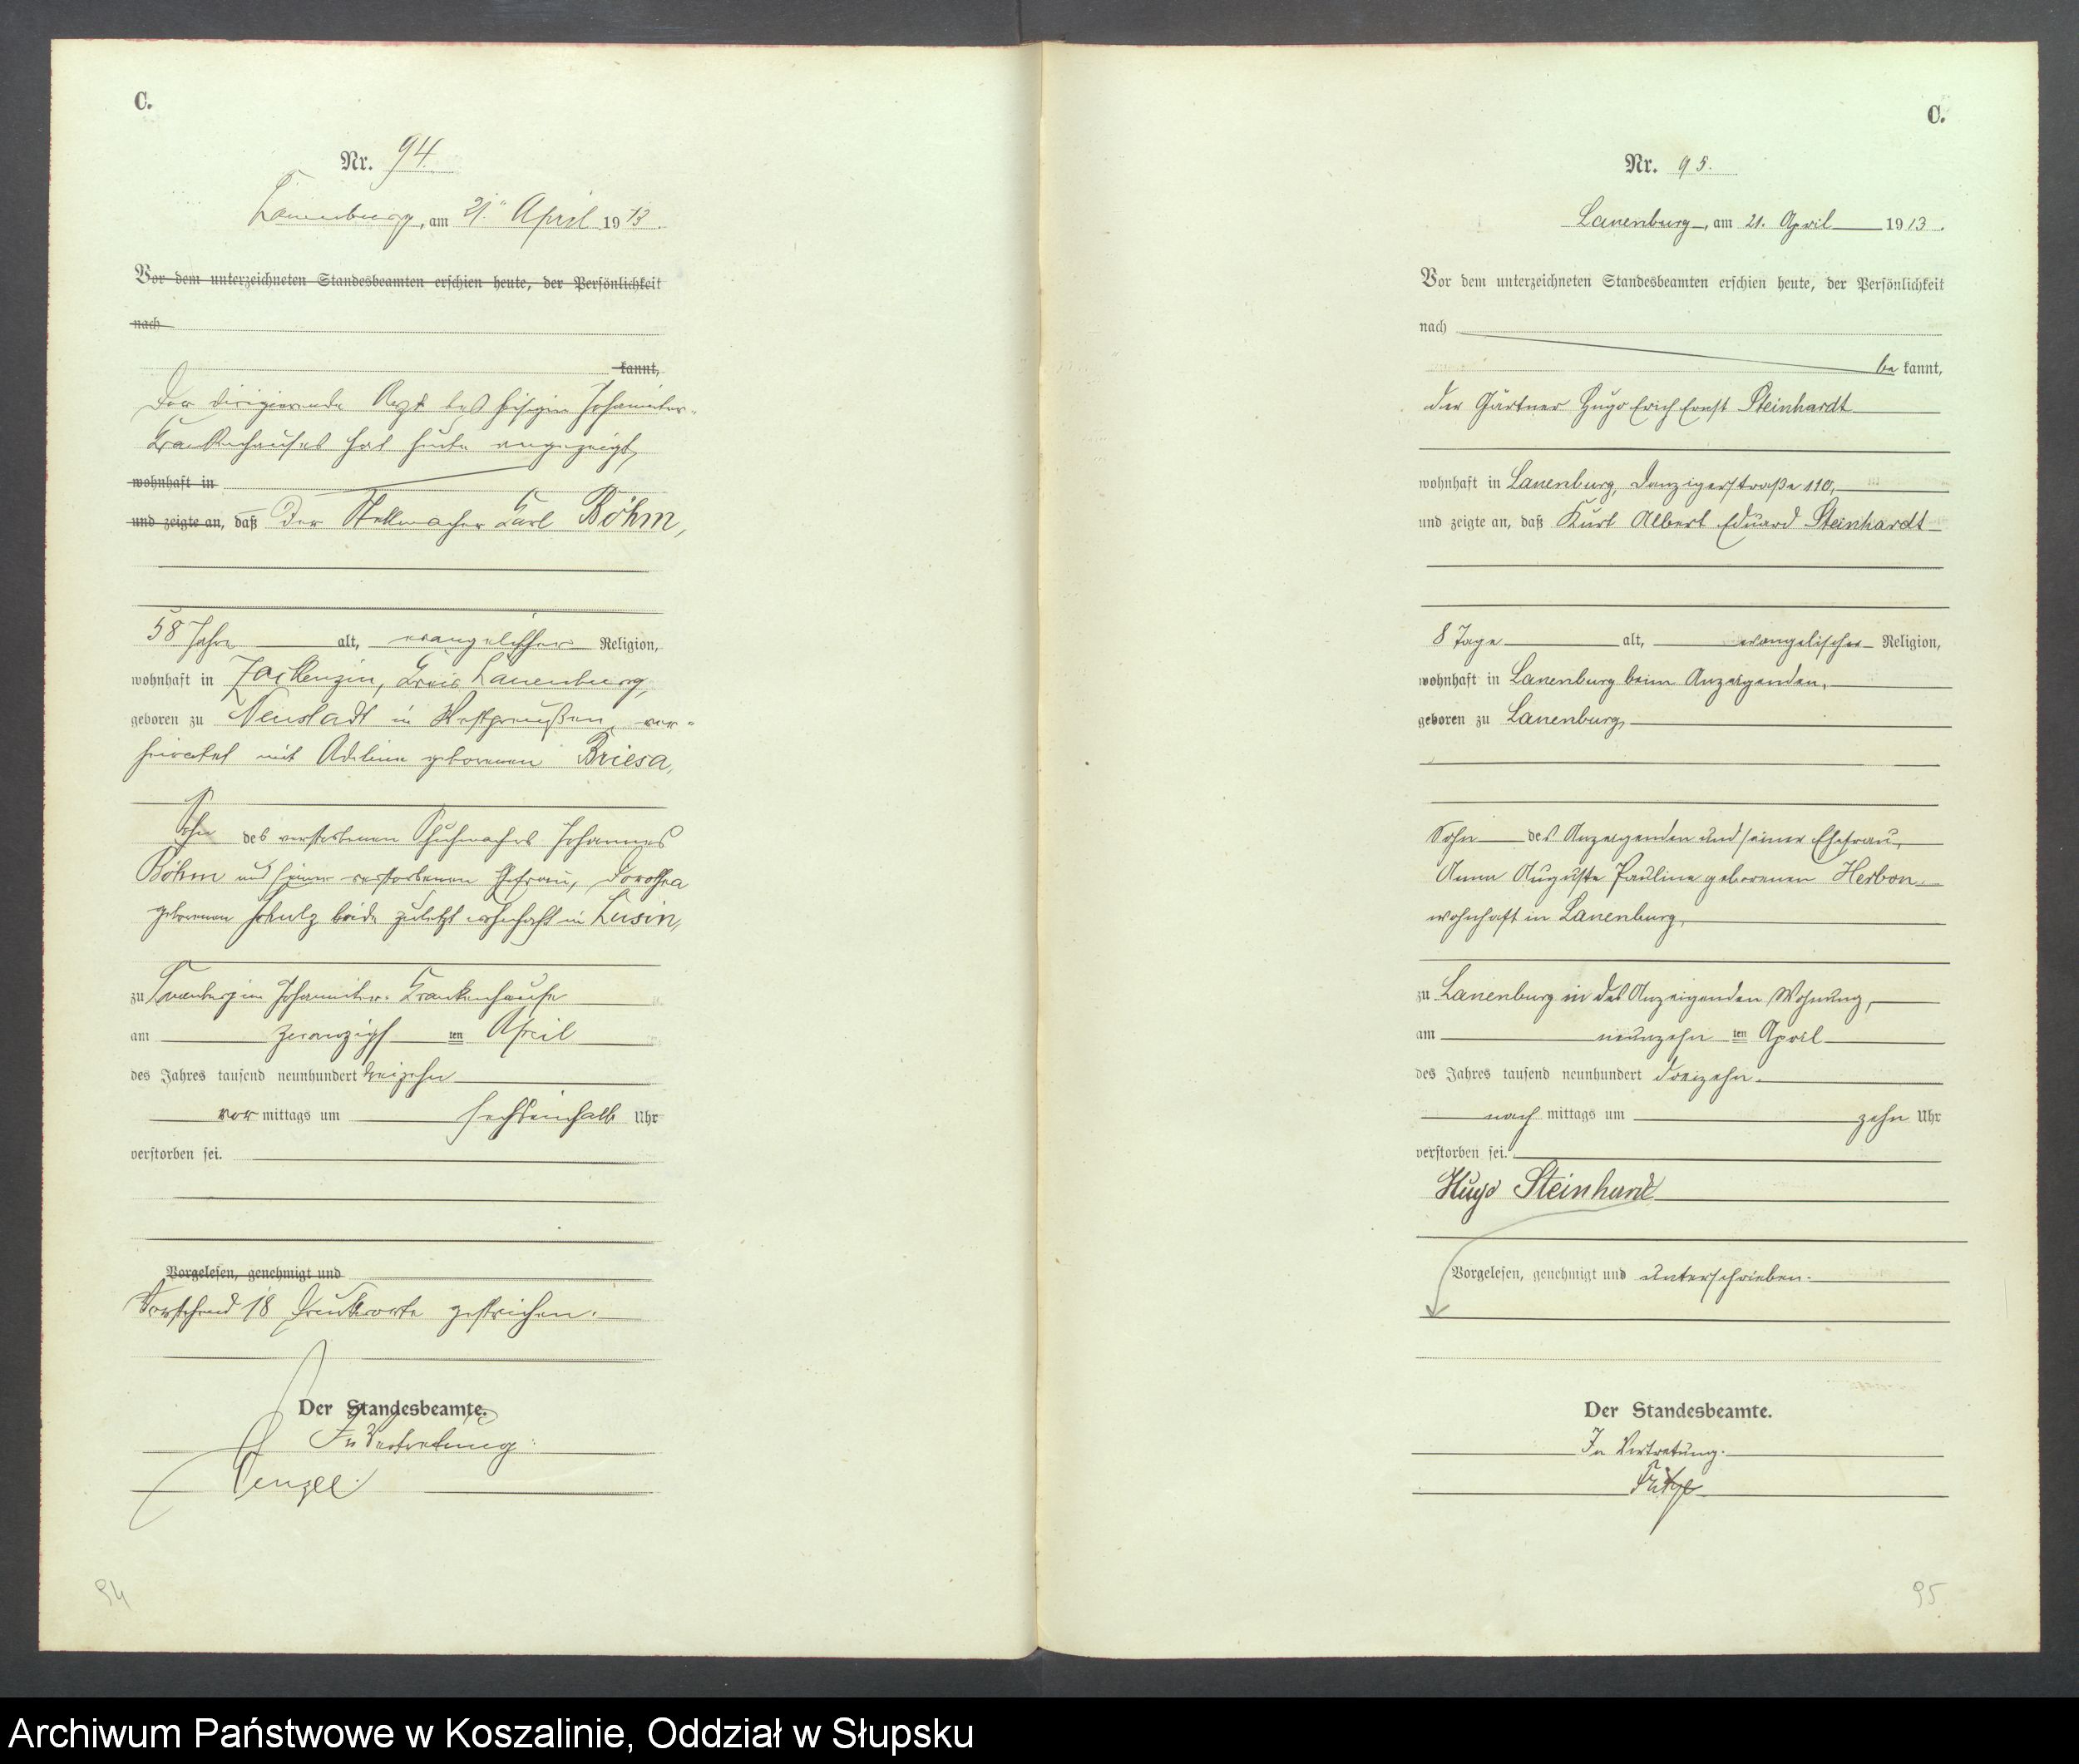 C.
Nr. 94.
Lauenburg, am 21. April 1913.
Vor dem unterzeichneten Standesbeamten erschien heute, der Persönlichkeit
nach
kannt,
Der dirigierende Arzt des hiesigen Johanniter-
Krankenhauses hat heute angezeigt,
wohnhaft in
und zeigte an, daß der Stellmacher Karl Böhm,
58 Jahre alt, evangelischer Religion,
wohnhaft in Zackenzin, Kreis Lauenburg,
geboren zu Neustadt in Westpreußen, ver-
heiratet mit Adeline geborenen Briesa,
Sohn des verstorbenen Schuhmachers Johannes
Böhm und seiner verstorbenen Ehefrau, Dorothea
geborenen Schulz beide zuletzt wohnhaft in Lusin,
zu Lauenburg im Johanniter-Krankenhause
am zwanzigsten April
des Jahres tausend neunhundert dreizehn
vormittags um sechseinhalb Uhr
verstorben sei.
Vorgelesen, genehmigt und
Vorstehend 18 Druckworte gestrichen.
Der Standesbeamte.
In Vertretung:
94
C.
Nr. 95.
Lauenburg, am 21. April 1913.
Vor dem unterzeichneten Standesbeamten erschien heute, der Persönlichkeit
nach
bekannt,
der Gärtner Hugo Erich Ernst Steinhardt
wohnhaft in Lauenburg, Danzigerstraße 110,
und zeigte an, daß Kurt Albert Eduard Steinhardt
8 Tage alt, evangelischer Religion,
wohnhaft in Lauenburg beim Anzeigenden,
geboren zu Lauenburg,
Sohn des Anzeigenden und seiner Ehefrau,
Anna Auguste Pauline geborenen Herbon
wohnhaft in Lauenburg,
zu Lauenburg in des Anzeigenden Wohnung,
am neunzehnten April
des Jahres tausend neunhundert dreizehn.
nachmittags um zehn Uhr
verstorben sei.
Hugo Steinhardt
Vorgelesen, genehmigt und unterschrieben.
Der Standesbeamte.
In Vertretung.
95
Archiwum Państwowe w Koszalinie, Oddział w Słupsku